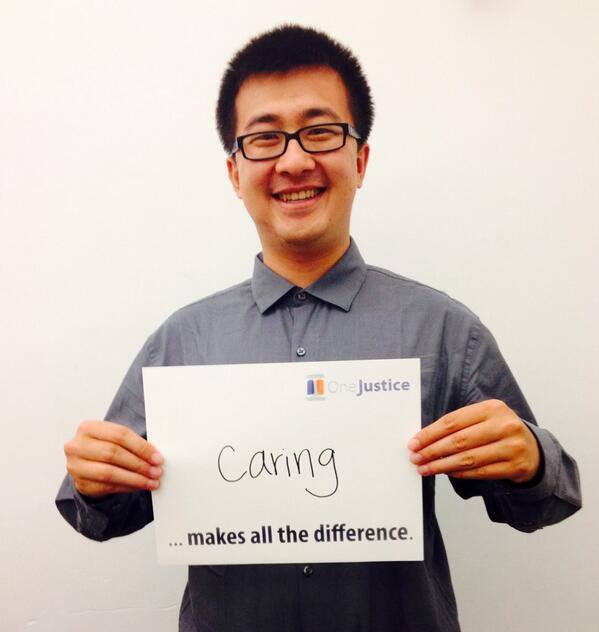 OneJustice
Caring
... makes all the difference.